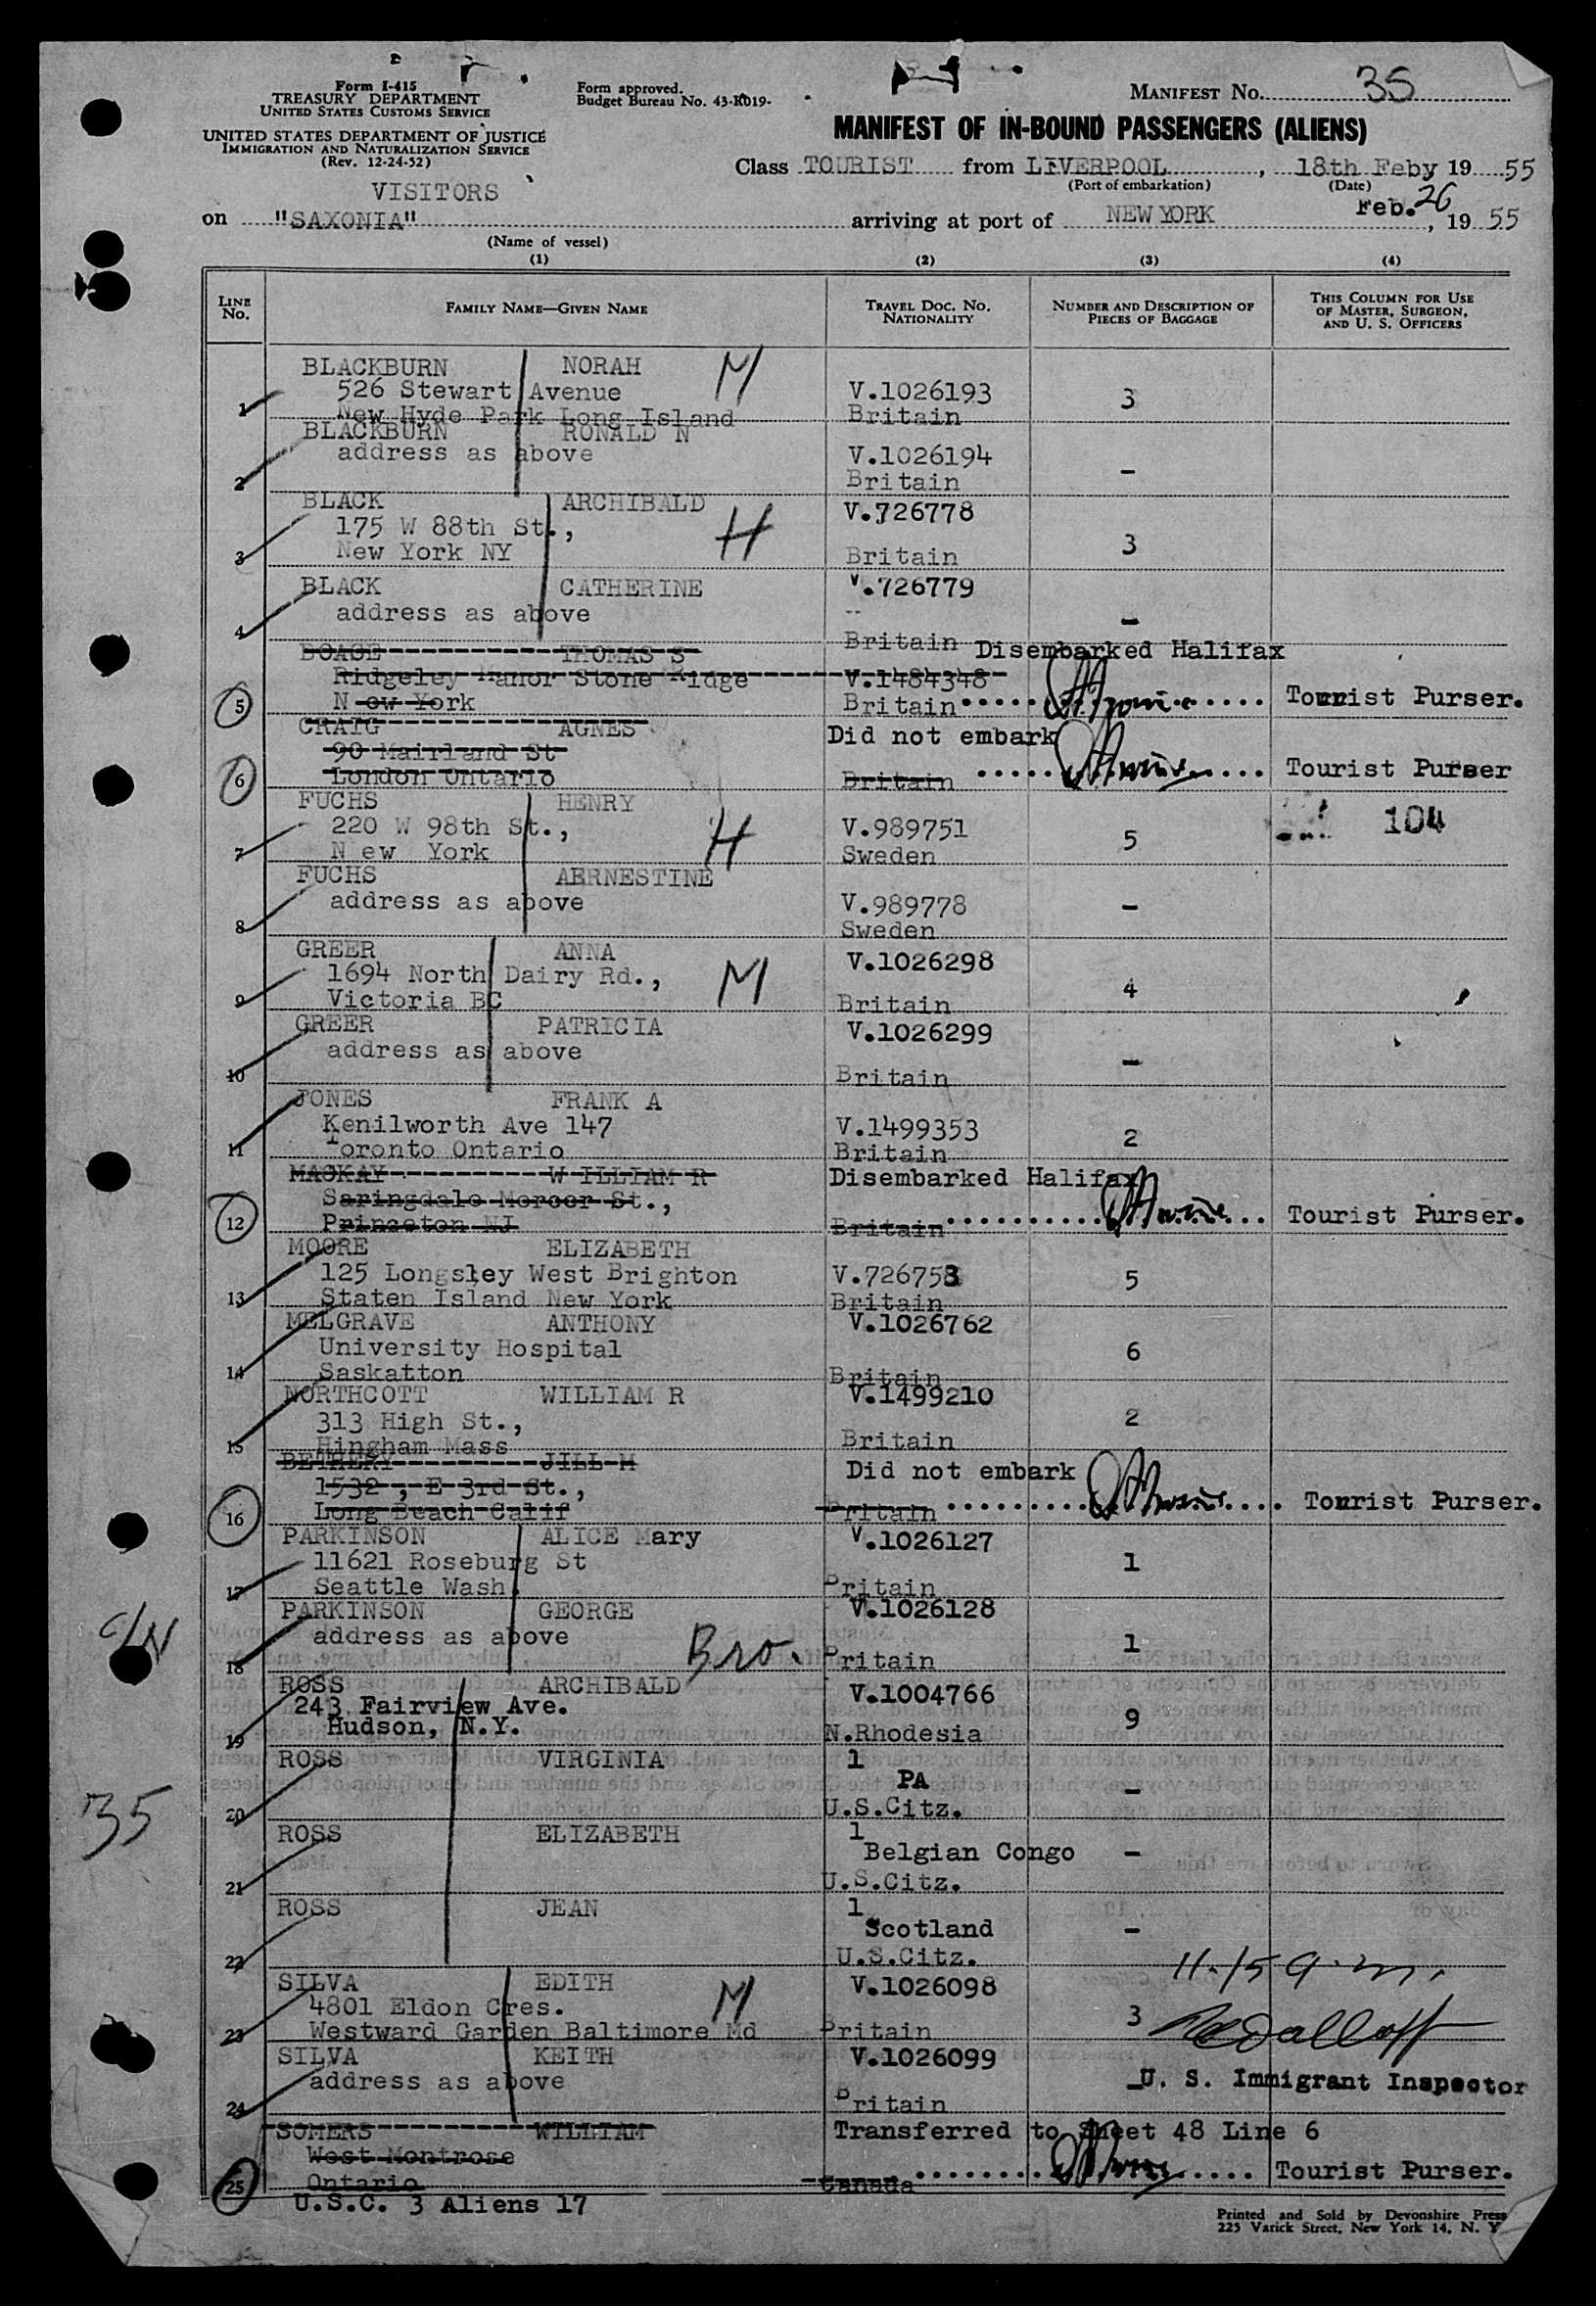 Form I-415
TREASURY DEPARTMENT
UNITED STATES CUSTOMS SERVICE
UNITED STATES DEPARTMENT OF JUSTICE
IMMIGRATION AND NATURALIZATION SERVICE
(Rev. 12-24-52)
Form approved.
Budget Bureau No. 43-R019-
MANIFEST No. 35
MANIFEST OF IN-BOUND PASSENGERS (ALIENS)
Class TOURIST from LIVERPOOL, 18th Feby 19 55
(Port of embarkation) (Date)
VISITORS
on "SAXONIA" arriving at port of NEW YORK Feb. 26, 19 55
(Name of vessel)
(1) (2) (3) (4)
LINE No. FAMILY NAME—GIVEN NAME TRAVEL DOC. NO. NATIONALITY NUMBER AND DESCRIPTION OF PIECES OF BAGGAGE THIS COLUMN FOR USE OF MASTER, SURGEON, AND U. S. OFFICERS
BLACKBURN NORAH M
526 Stewart Avenue V.1026193 3
1 New Hyde Park Long Island Britain
BLACKBURN RONALD N
address as above V.1026194 -
2 Britain
BLACK ARCHIBALD V.726778
175 W 88th St., H
3 New York NY Britain 3
BLACK CATHERINE V.726779
address as above -
4 Britain
BOAGE THOMAS S Disembarked Halifax
Ridgeley Manor Stone Ridge V.1484348
5 N ew York Britain Tourist Purser.
CRAIG AGNES Did not embark
90 Mairland St
6 London Ontario Britain Tourist Purser
FUCHS HENRY 104
220 W 98th St., V.989751 5
7 N ew York H Sweden
FUCHS AERNESTINE
address as above V.989778 -
8 Sweden
GREER ANNA V.1026298
1694 North Dairy Rd., M 4
9 Victoria BC Britain
GREER PATRICIA V.1026299
address as above -
10 Britain
JONES FRANK A
Kenilworth Ave 147 V.1499353 2
11 Toronto Ontario Britain
MACKAY W ILLIAM R Disembarked Halifax
Saringdale Mercer St.,
12 Princeton NJ Britain Tourist Purser.
MOORE ELIZABETH
125 Longsley West Brighton V.726753 5
13 Staten Island New York Britain
MELGRAVE ANTHONY V.1026762
University Hospital 6
14 Saskatton Britain
NORTHCOTT WILLIAM R V.1499210
313 High St., 2
15 Hingham Mass Britain
BETHERY JILL M Did not embark
1532 , E 3rd St.,
16 Long Beach Calif Britain Tourist Purser.
PARKINSON ALICE Mary V.1026127
11621 Roseburg St 1
17 Seattle Wash. Britain
PARKINSON GEORGE V.1026128
address as above Bro. 1
18 Britain
ROSS ARCHIBALD V.1004766
243 Fairview Ave. 9
19 Hudson, N.Y. N.Rhodesia
ROSS VIRGINIA 1
PA -
20 U.S.Citz.
35
ROSS ELIZABETH 1
Belgian Congo -
21 U.S.Citz.
ROSS JEAN 1
Scotland -
22 U.S.Citz. 11.15 a.m.
SILVA EDITH M V.1026098
4801 Eldon Cres. 3
23 Westward Garden Baltimore Md Britain
SILVA KEITH V.1026099
address as above - U. S. Immigrant Inspector
24 Britain
SOMERS WILLIAM Transferred to Sheet 48 Line 6
West Montrose
25 Ontario Canada Tourist Purser.
U.S.C. 3 Aliens 17
Printed and Sold by Devonshire Press
225 Varick Street, New York 14, N. Y